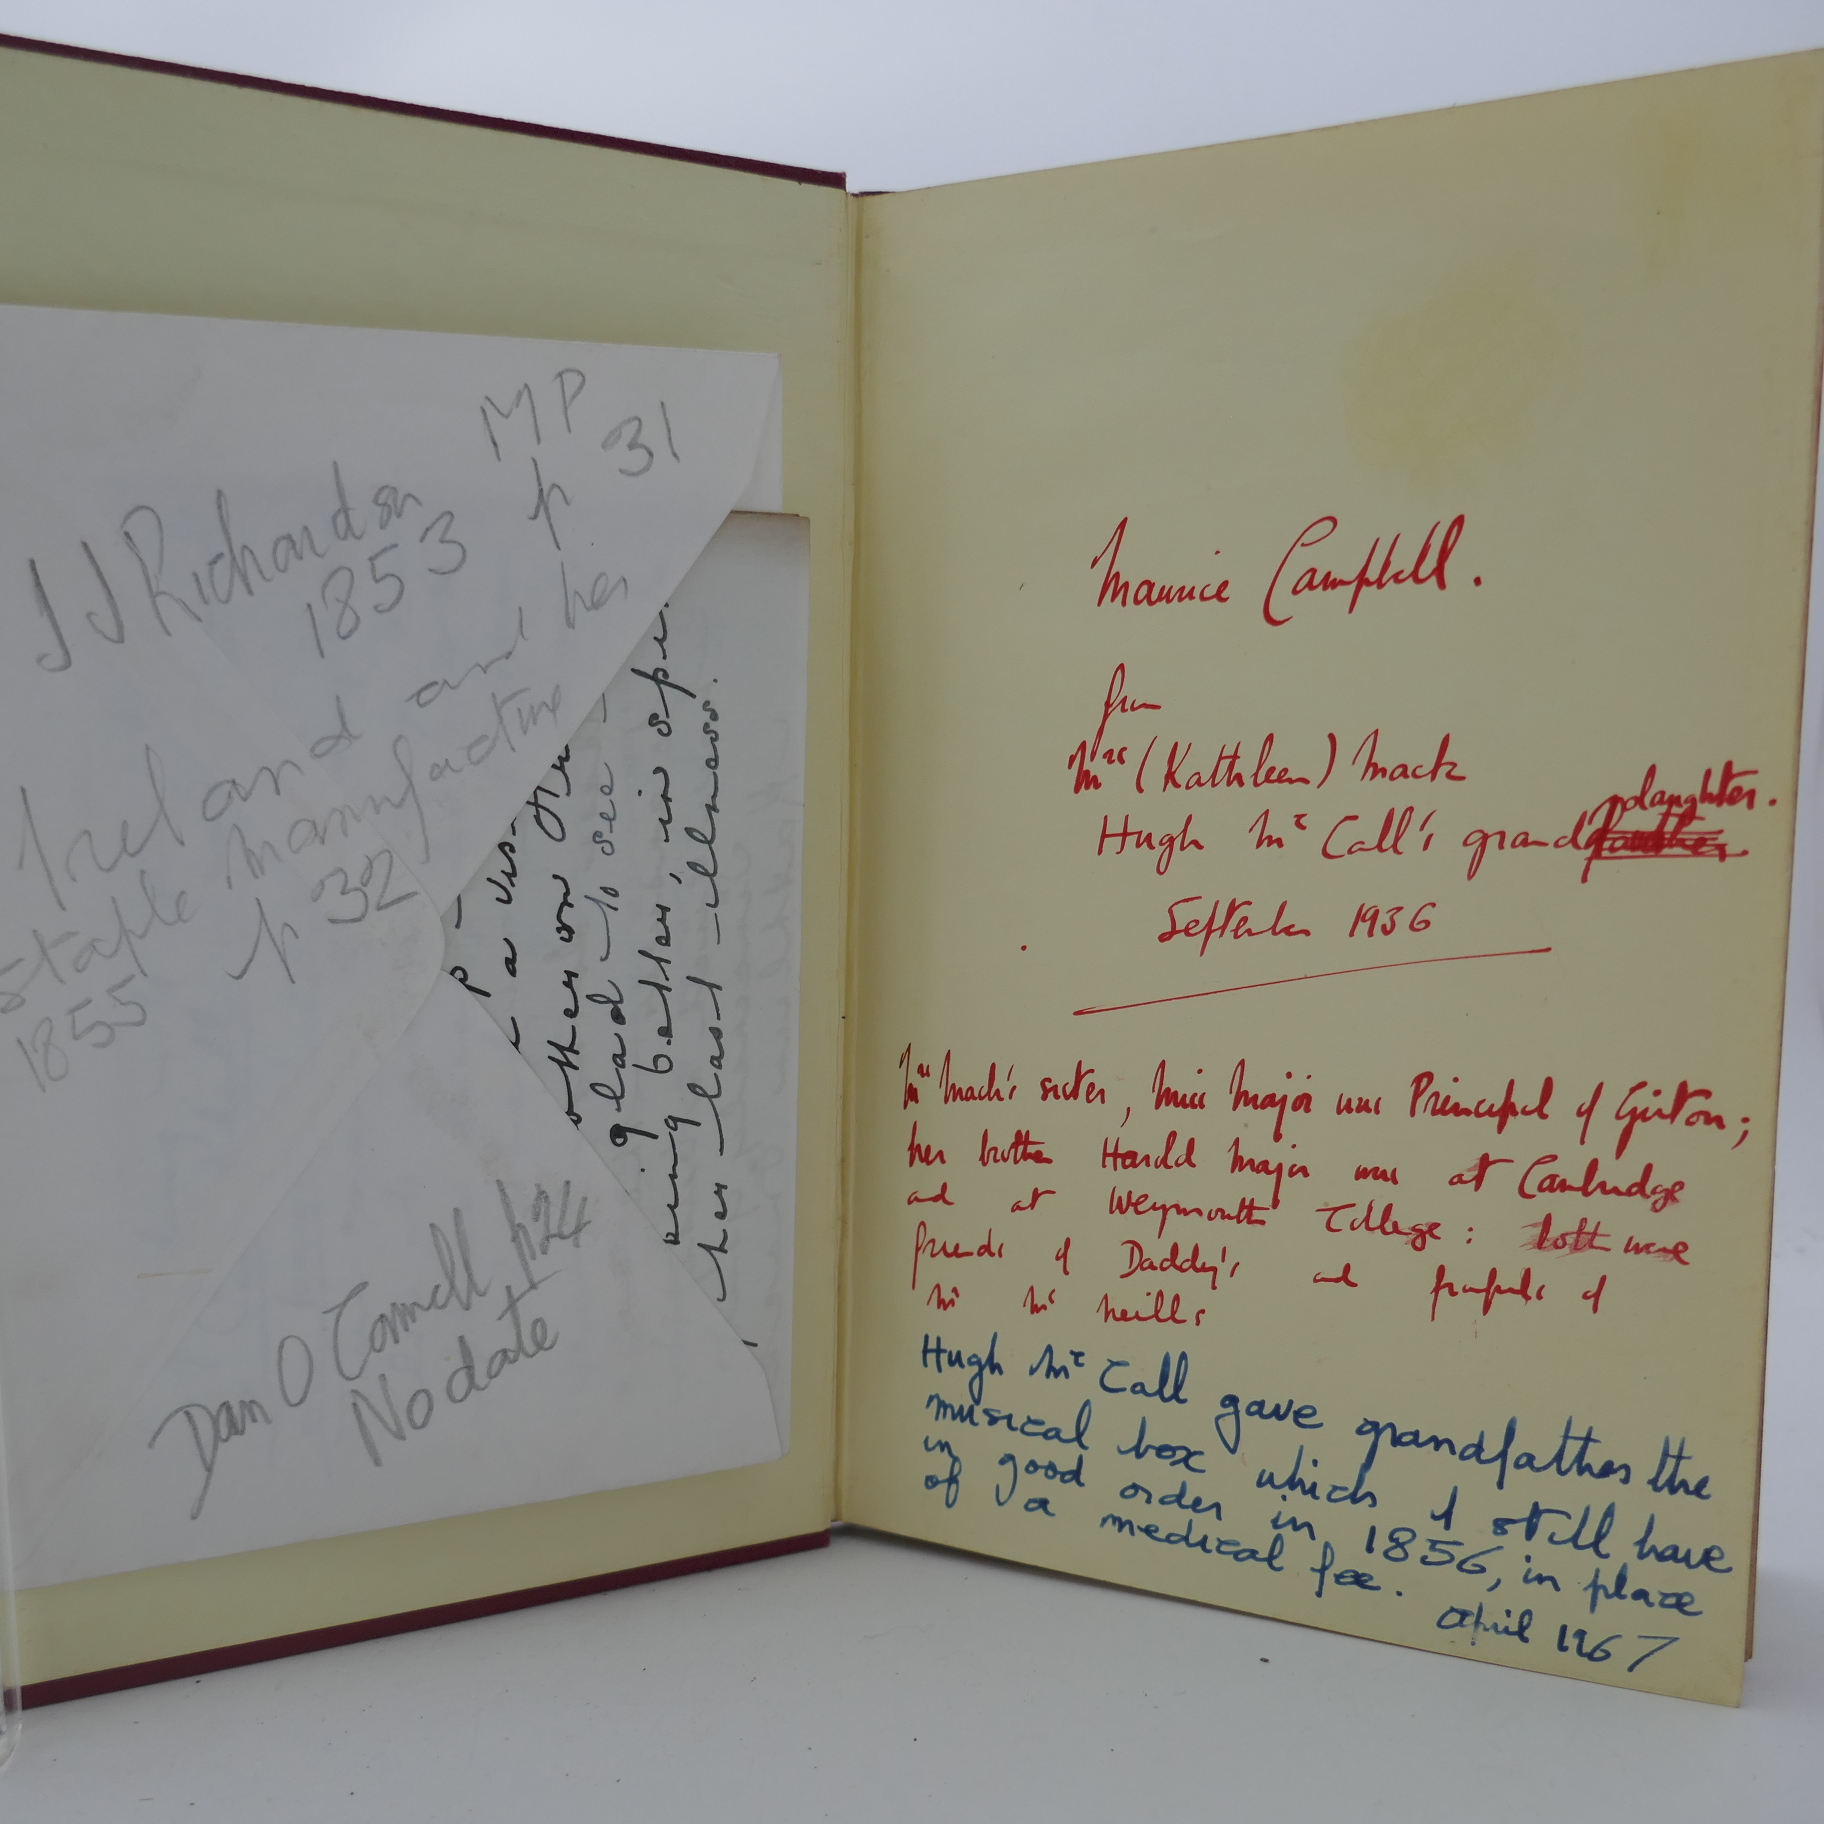 J J Richardson MP
1853 p 31
Ireland and her
staple manufacture
1855 p 32
Dan O Connell p24
No date
a vis
other on
glad to see
being better, in spi
her last illness.
Maurice Campbell.
from
Mrs (Kathleen) Mack
Hugh Mc Call's granddaughter.
September 1936
Mrs Mack's sister, Miss Major was Principal of Girton;
her brother Harold Major was at Cambridge
and at Weymouth College: both were
friends of Daddy's and pupils of
Mr Mc Neill's
Hugh Mc Call gave grandfather the
musical box which I still have
in good order in 1856, in place
of a medical fee.
April 1967